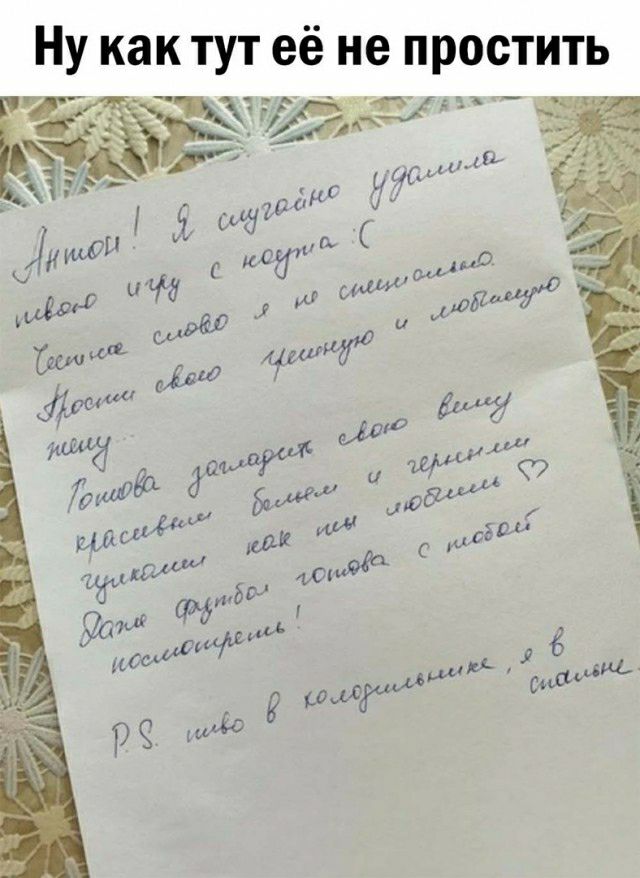 Ну как тут её не простить
Антон! Я случайно удалила
твою игру с ноута :(
Честное слово я не специально.
Прости свою грешную и любящую
жену...
Готова загладить свою вину
красивым бельем и черными
чулками как ты любишь ♡
Даже футбол готова с тобой
посмотреть!
P.S. пиво в холодильнике, я в
спальне.